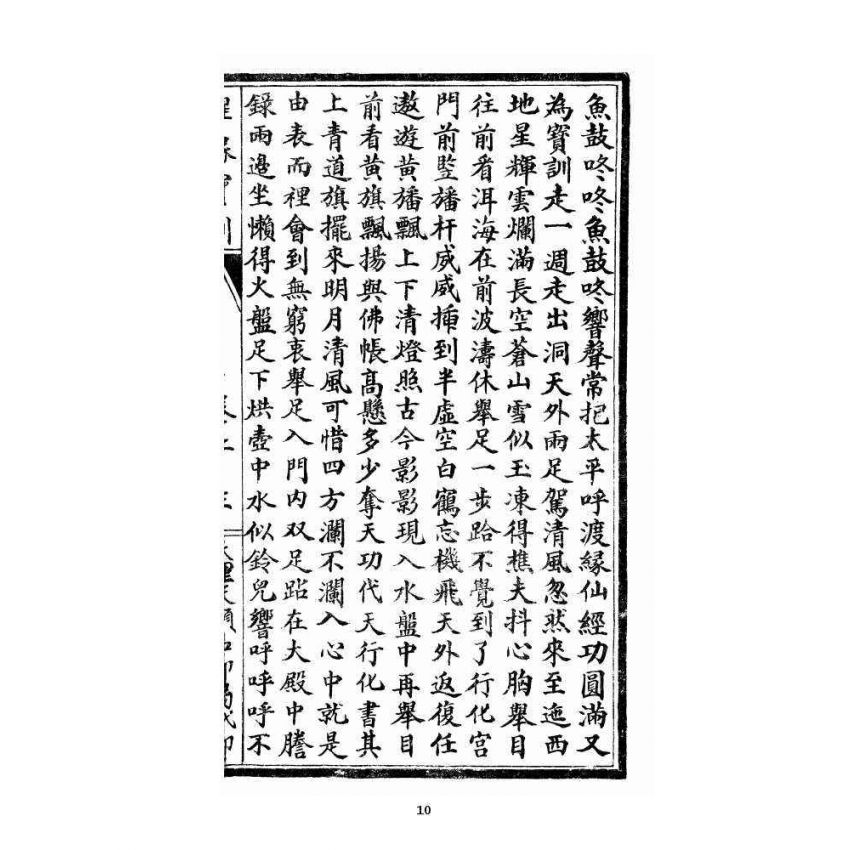 魚鼓咚咚魚鼓咚響聲常把太平呼渡緣仙經功圓滿又
為寶訓走一週走出洞天外兩足駕清風忽然來至迤西
地星輝雲爛滿長空蒼山雪似玉凍得樵夫抖心胸舉目
往前看洱海在前波濤休舉足一步跲不覺到了行化宮
門前豎旛杆威威揷到半虛空白鶴忘機飛天外返復任
遨遊黃旛飄上下清燈照古今影影現入水盤中再舉目
前看黃旗飄揚與佛帳高懸多少奪天功代天行化書其
上青道旗擺來明月清風可惜四方瀾不瀾入心中就是
由表而裡會到無窮衷舉足入門內双足跕在大殿中謄
錄兩邊坐懶得火盤足下烘壺中水似鈴兒響呼呼呼不
10